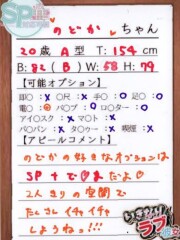 のどか ちゃん
20歳 A型 T:154cm
B:82(B) W:58 H:79
【可能オプション】
即○:x オ○R:x 手○:x 足○:x
電○:○ バ○ブ:x ロ○ター:○
アイ○スク:x マ○ト:x
パ○パン:x タ○ゥー:x 喫煙:x
【アピールコメント】
のどかの好きなオプションは
SPトで♡まだよ♡
2人きりの空間で
たくさんイチャイチャ
しようねっ!!!